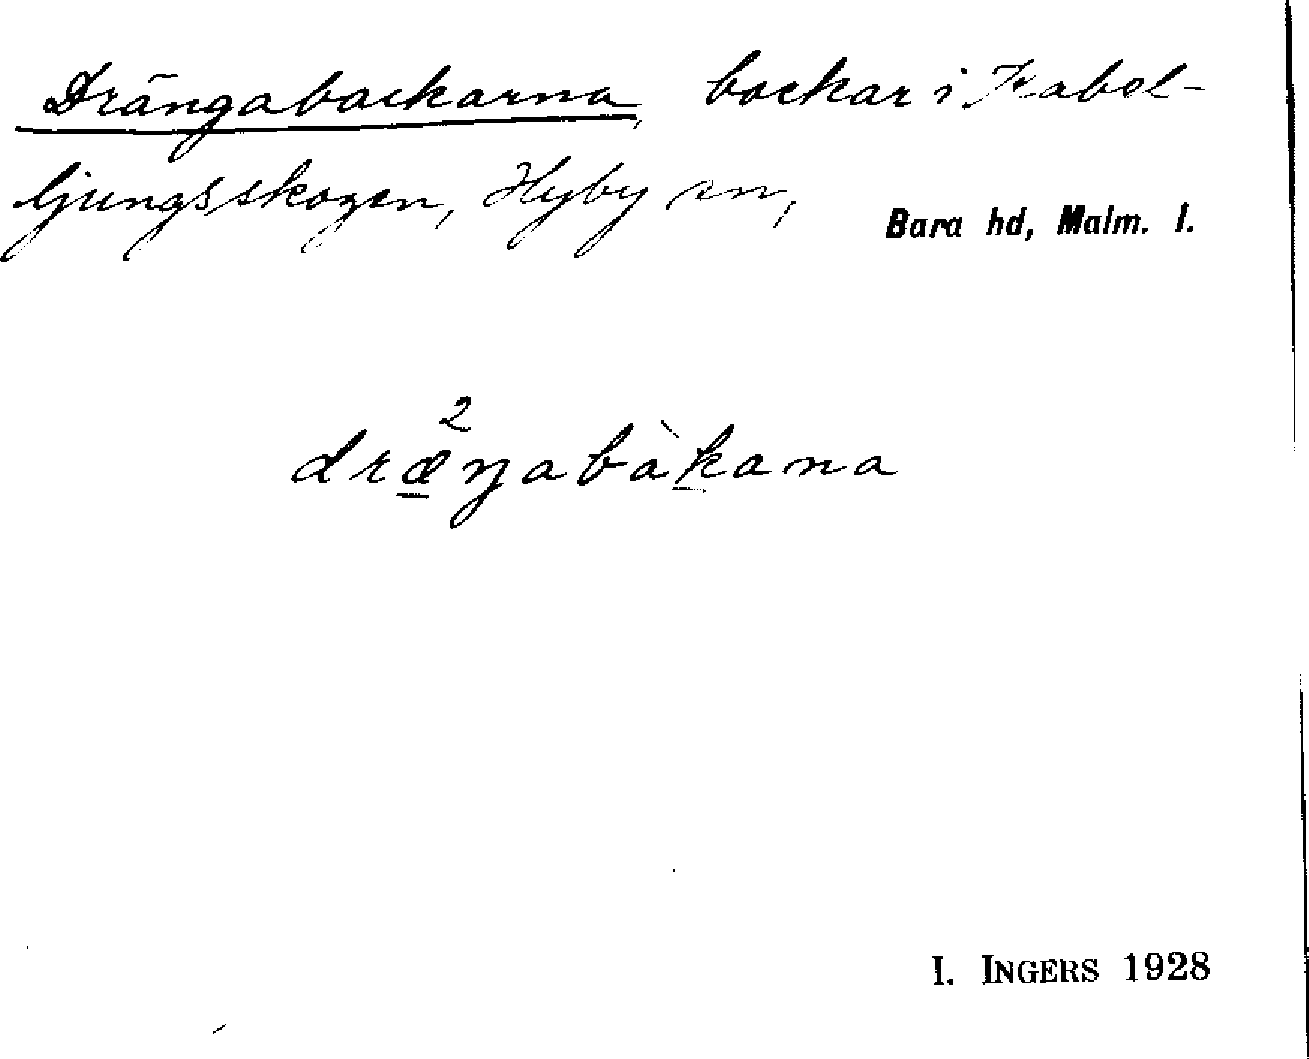 Drängabackarna, backar i Kabel-
ljungsskogen, Hyby sn, Bara hd, Malm. l.
2
dræŋabàkana
I. INGERS 1928